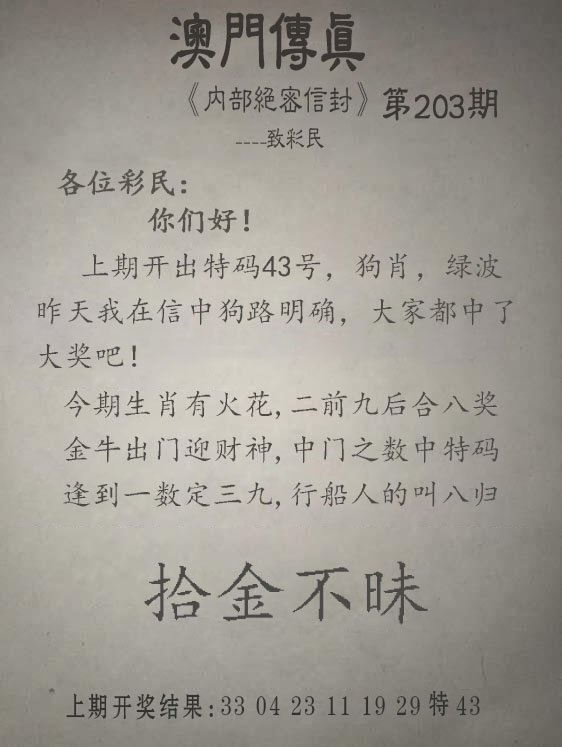 澳門傳眞
《内部絕密信封》第203期
----致彩民
各位彩民:
你们好!
上期开出特码43号，狗肖，绿波
昨天我在信中狗路明确，大家都中了
大奖吧!
今期生肖有火花,二前九后合八奖
金牛出门迎财神,中门之数中特码
逢到一数定三九,行船人的叫八归
拾金不昧
上期开奖结果:33 04 23 11 19 29 特 43